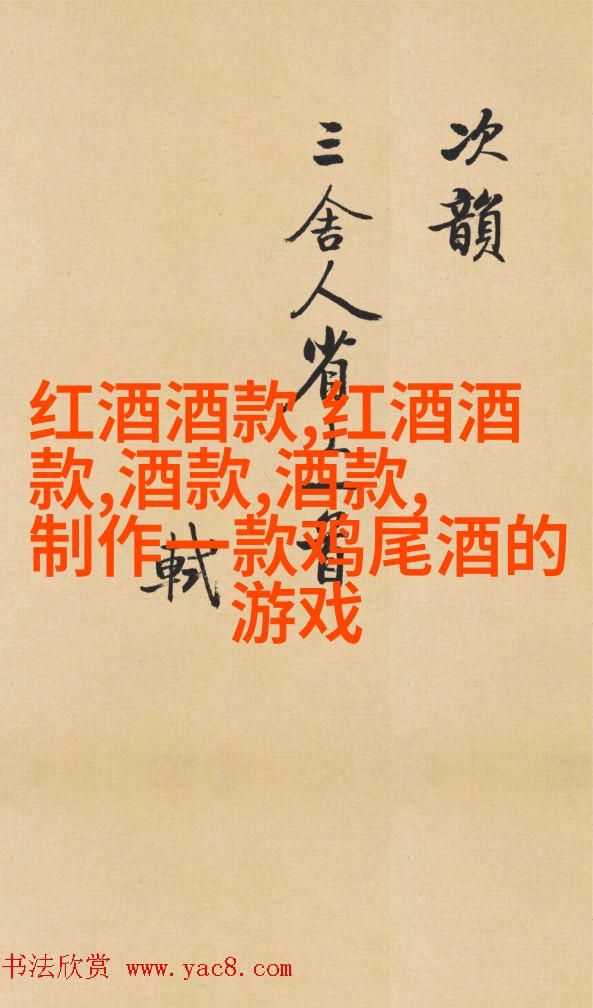 次韻
三舍人省上
軾
红酒酒款,红酒酒
款,酒款,酒款,
制作一款鸡尾酒的
游戏
书法欣赏 www.yac8.com